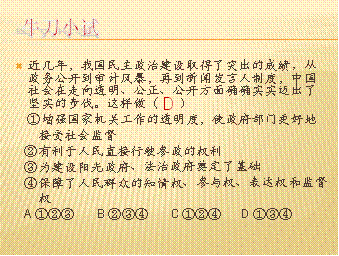 牛刀小试
近几年，我国民主政治建设取得了突出的成绩，从
政务公开到审计风暴，再到新闻发言人制度，中国
社会在走向透明、公正、公开方面确确实实迈出了
坚实的步伐。这样做（ D ）
①增强国家机关工作的透明度，使政府部门更好地
接受社会监督
②有利于人民直接行使参政的权利
③为建设阳光政府、法治政府奠定了基础
④保障了人民群众的知情权、参与权、表达权和监督
权
A ①②③ B ②③④ C ①②④ D ①③④